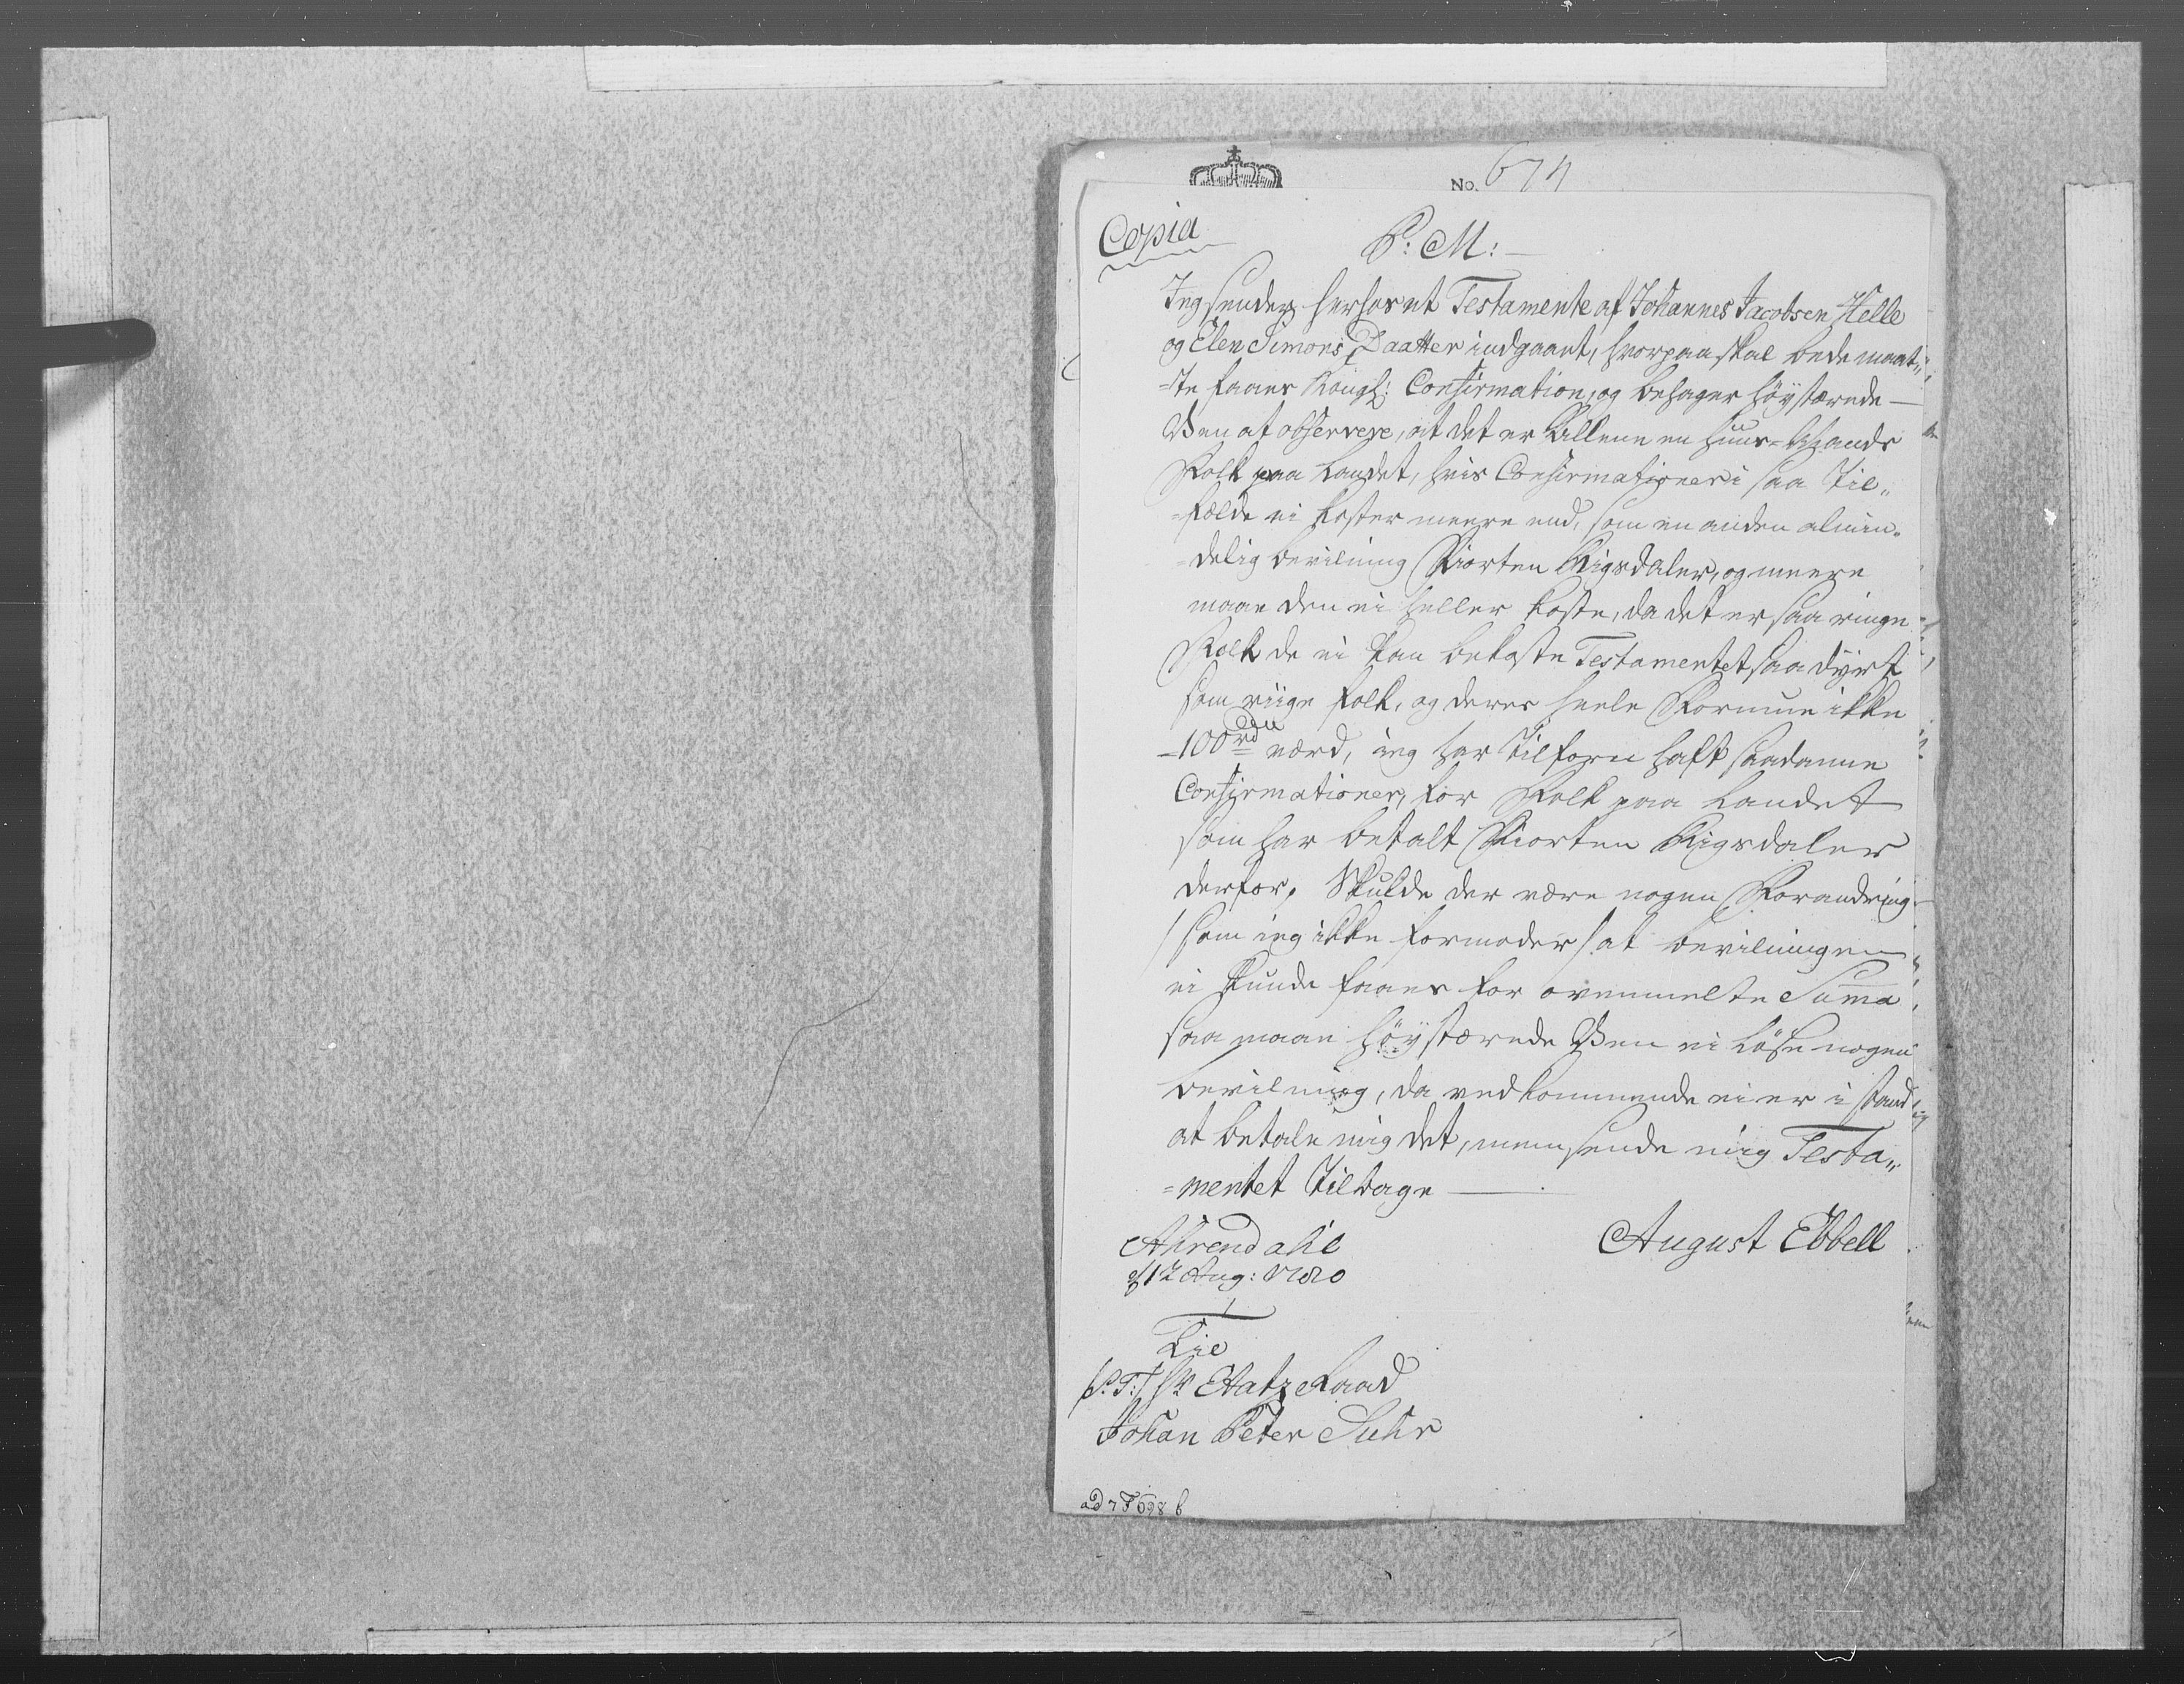 No. 674
Copia
P: M:
Jeg sender herhos et Testamente af Johannes Jacobsen Helle
og Elen Simons Daatter indgaaet, hvorpaa skal bede maat„
=te faaes Kongl: Confirmation, og behager høystærede
Ven at observere, at det er kuns en Huus-Mands
Folk paa Landet, hvis Confirmationer i saa Til„
=fælde ei koster meere end, som en anden almin„
=delig bevilning Fiorten Rigsdaler, og meere
maae den ei heller koste, da det er saa ringe
Folk de ei kan bekoste Testamentet saa dyrt
som riige folk, og deres heele Formue ikke
100 rd værd, ieg har tilforn haft saadanne
Confirmationer, for Folk paa Landet
som har betalt Fiorten Rigsdaler
derfor, Skulde der være nogen Forandring
/som ieg ikke formoder/ at bevilningen
ei kunde faaes for ovenmelte Suma
saa maae høystærede Ven ei løse nogen
bevilning, da vedkommende ei er i stand
at betale mig det, men sende mig Testa„
=mentet tilbage
Ahrendahl
d 12 Aug: 1780
August Ebbell
Til
S. T. Hr Etatz Raad
Johan Peter Suhr
ad 7 F 698 b